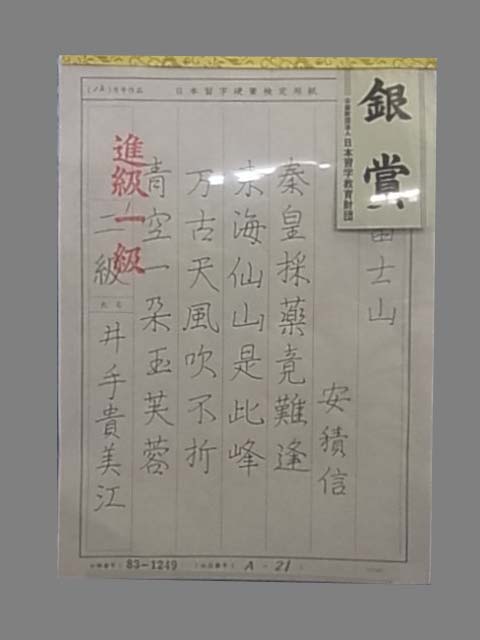 日本習字硬筆検定用紙
銀賞
公益財団法人
日本習字教育財団
富士山
安積信
秦皇採薬竟難逢
東海仙山是此峰
万古天風吹不折
青空一朶玉芙蓉
進級一級
二級
氏名
井手貴美江
83-1249
A-21